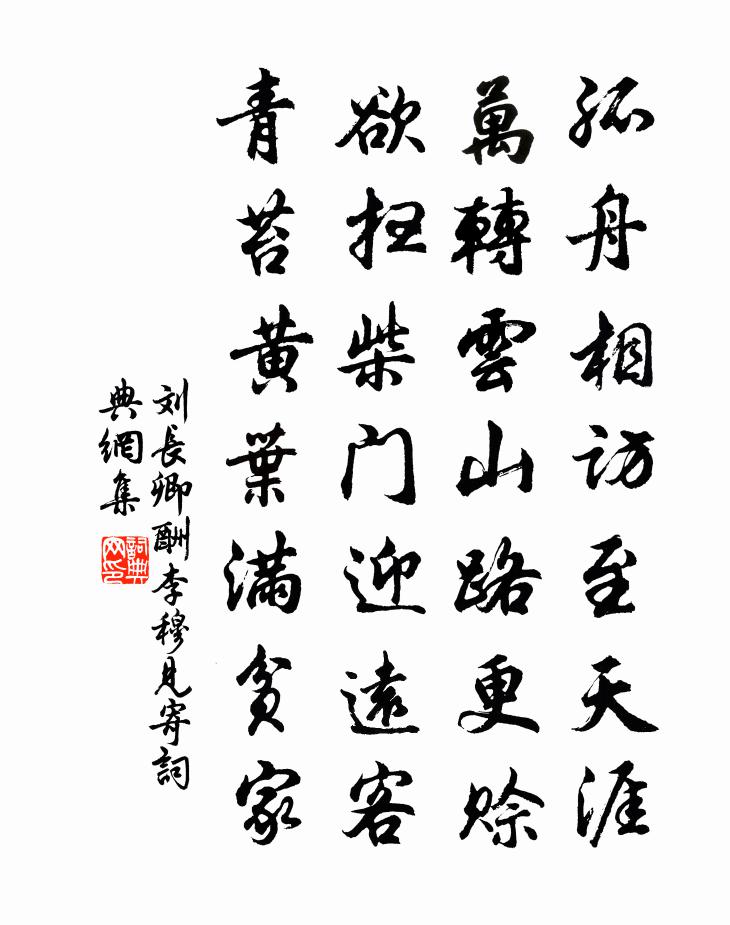 孤舟相访至天涯
萬轉雲山路更赊
欲扫柴门迎遠客
青苔黄葉满贫家
刘長卿酬李穆見寄詞
典網集
詞典
网印